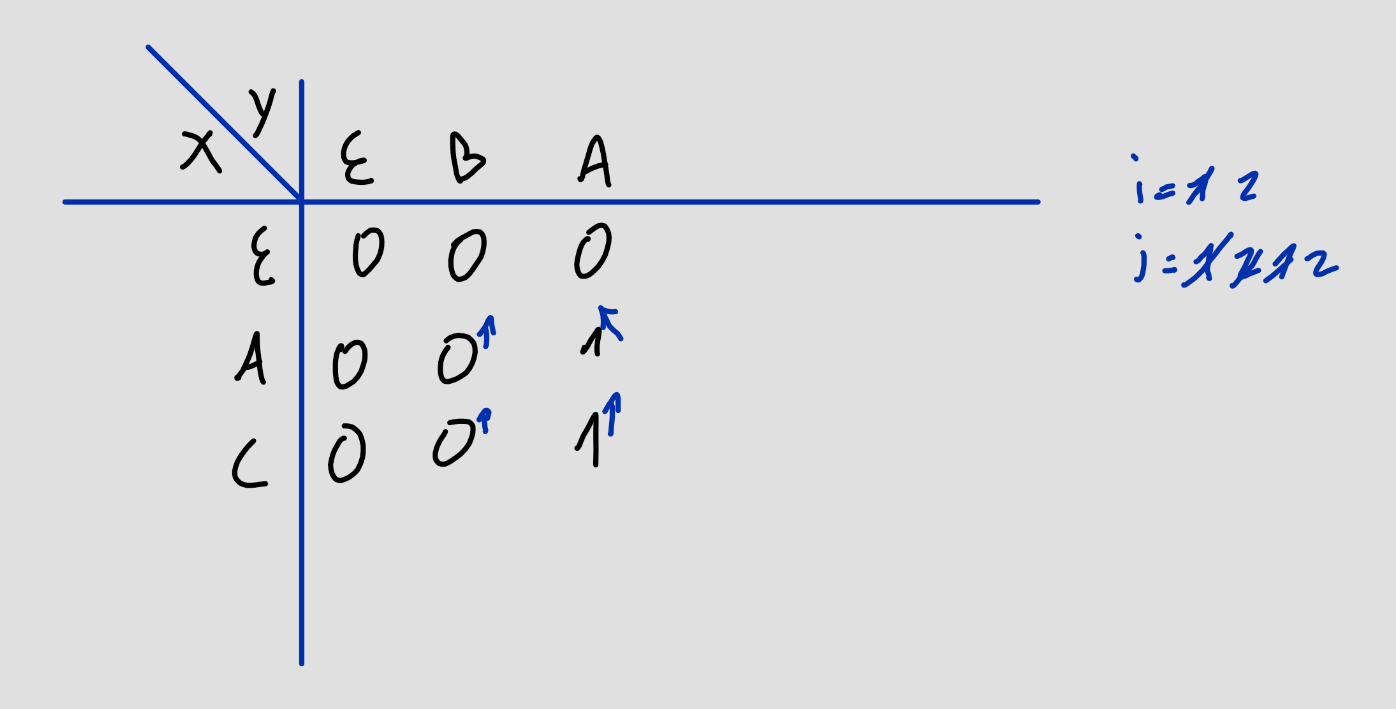 y
x ε B A
ε 0 0 0
A 0 0↑ 1↖
C 0 0↑ 1↑
i = 1 2
j = 1 2 1 2